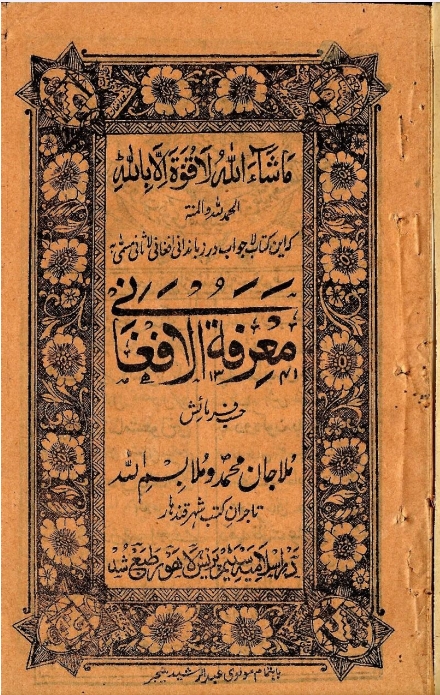 مَا شَآءَ اللّٰهُ لَا قُوَّةَ اِلَّا بِاللّٰهِ
الحمد لله والمنة
که این کتاب لاجواب در زباندانی افغانی لاثانی
معرفة الافغانی
۱۳۴۱ھ
حسب فرمائش
ملا جان محمد و ملا بسم الله
تاجران کتب شهر قندهار
در اسلامیه سٹیم پریس لاهور طبع شد
باہتمام مولوی عبدالرشید منیجر